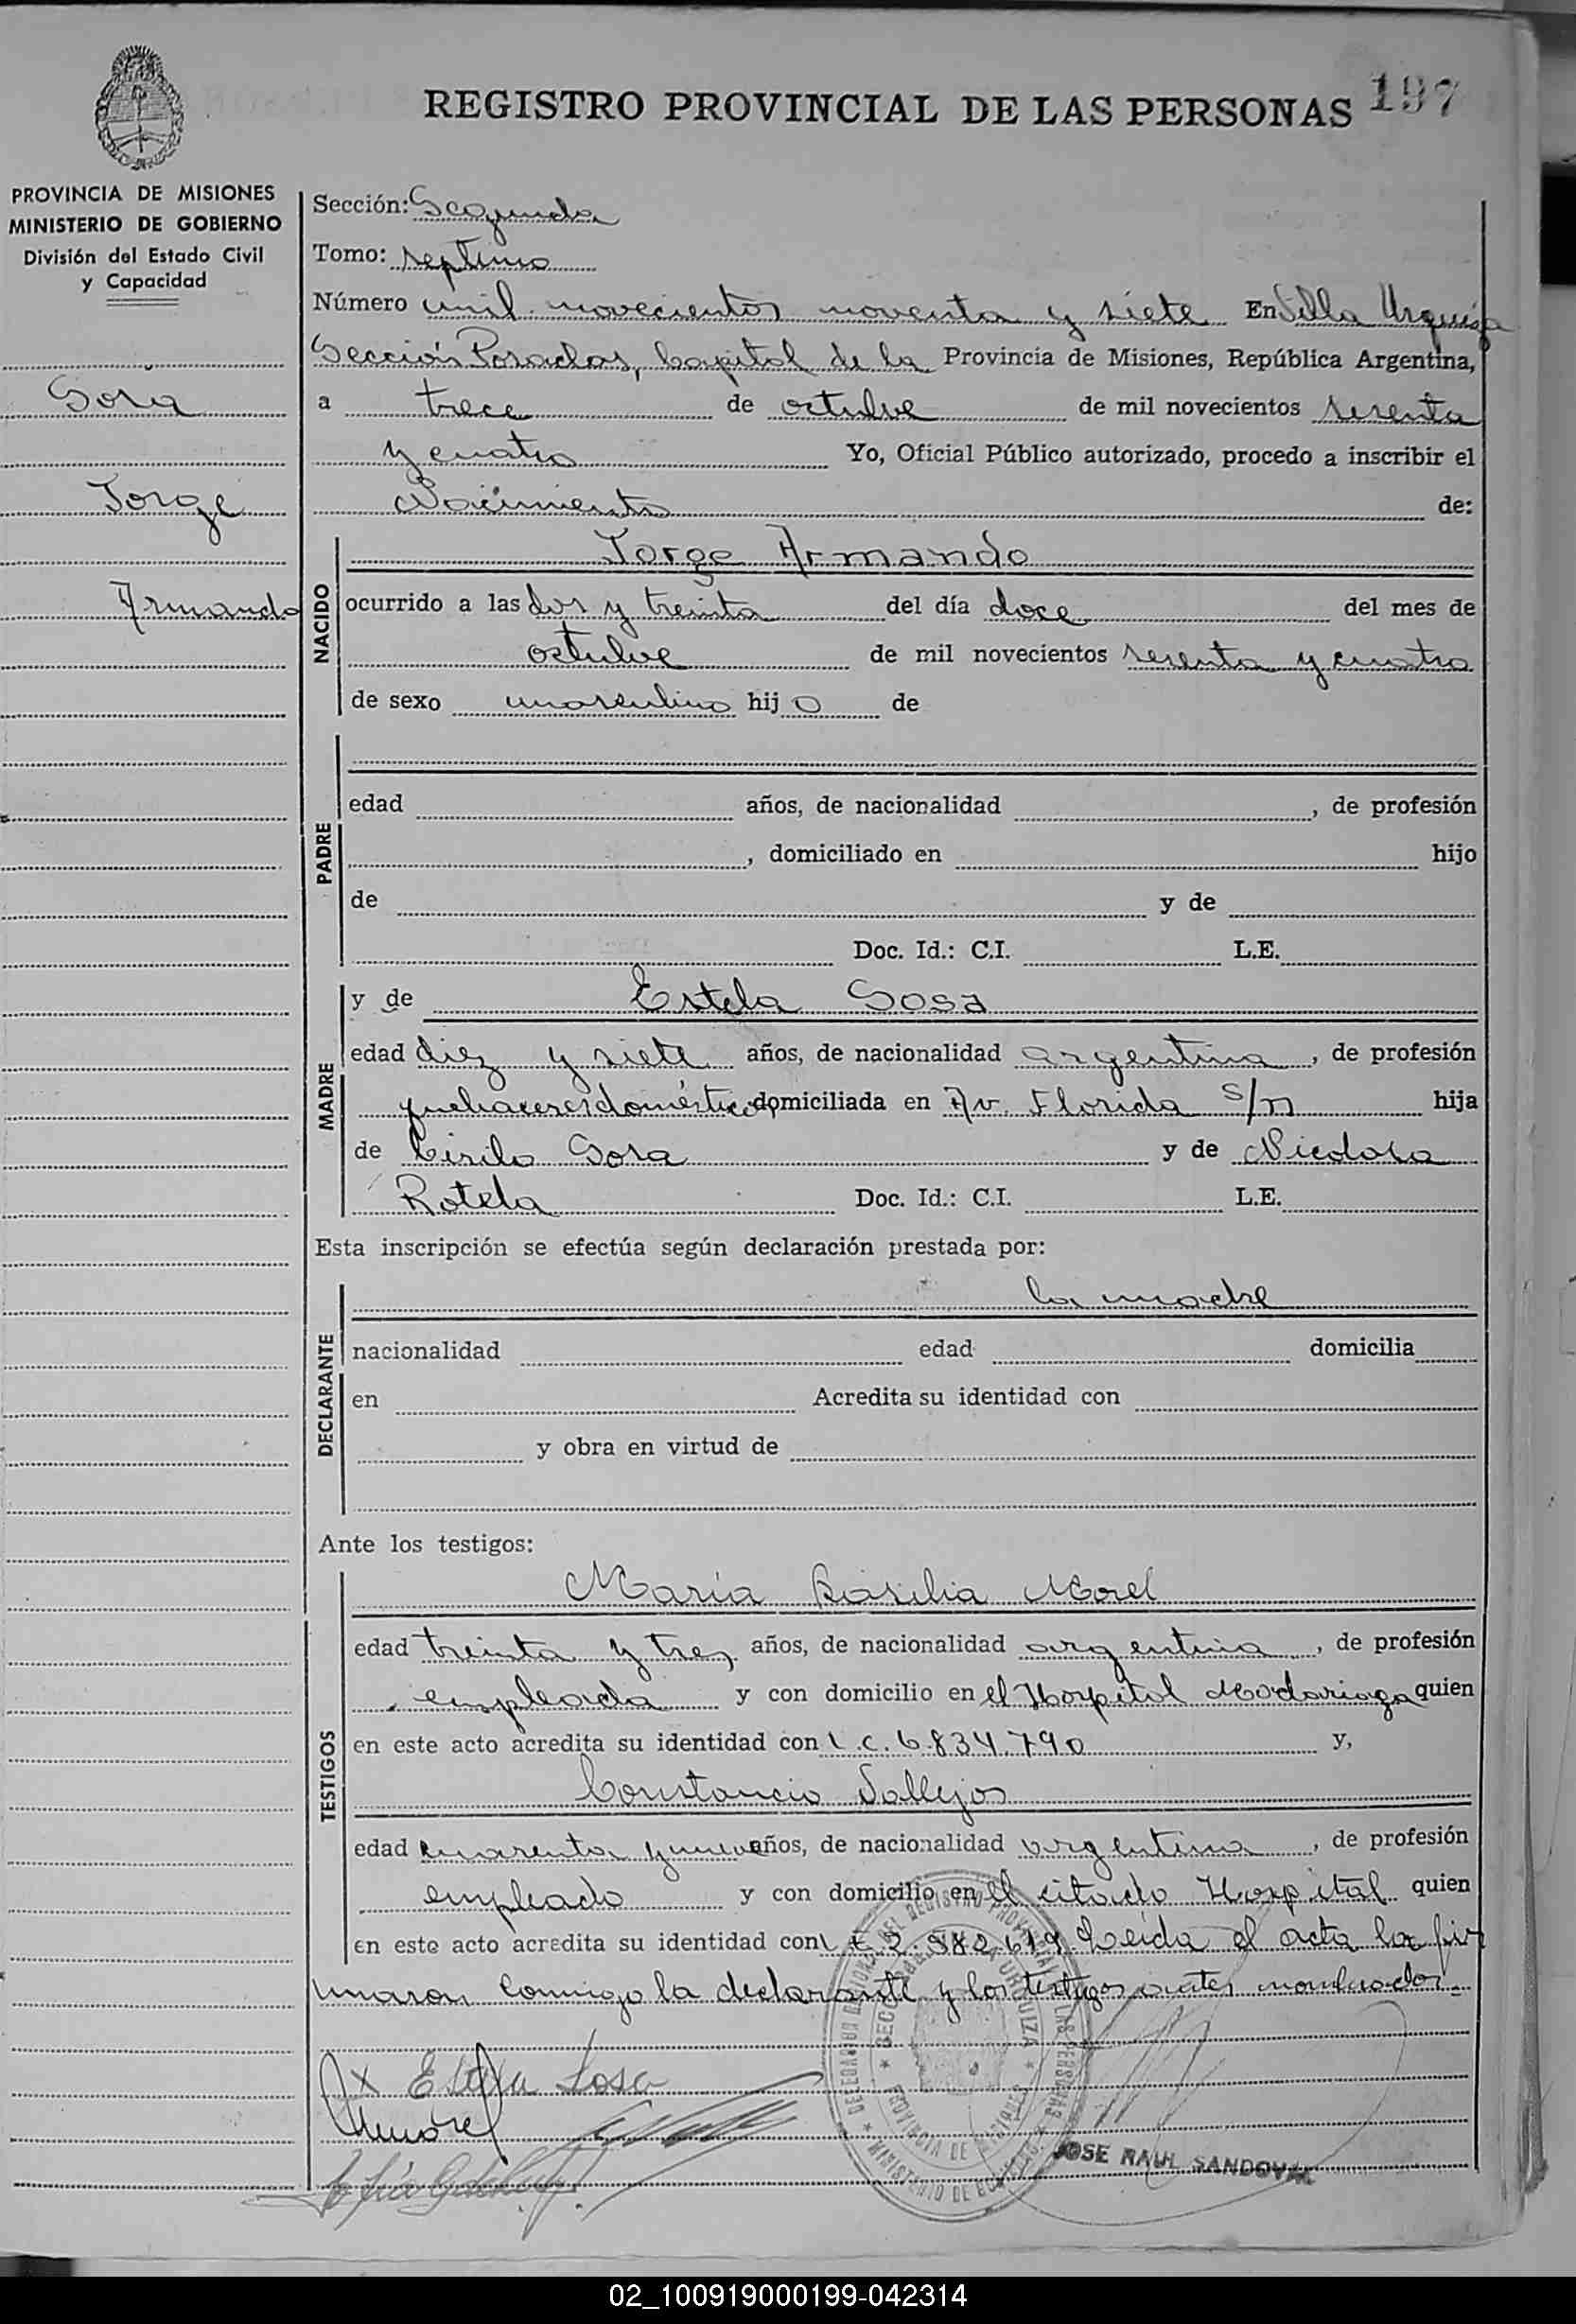 REGISTRO PROVINCIAL DE LAS PERSONAS 197
PROVINCIA DE MISIONES
MINISTERIO DE GOBIERNO
División del Estado Civil
y Capacidad
Sosa
Jorge
Armando
Sección: Segunda
Tomo: septimo
Número mil novecientos noventa y siete En Villa Urquiza
Sección Posadas, Capital de la Provincia de Misiones, República Argentina,
a trece de octubre de mil novecientos sesenta
y cuatro Yo, Oficial Público autorizado, procedo a inscribir el
Nacimiento de:
NACIDO
Jorge Armando
ocurrido a las dos y treinta del día doce del mes de
octubre de mil novecientos sesenta y cuatro
de sexo masculino hijo de
PADRE
edad años, de nacionalidad , de profesión
, domiciliado en hijo
de y de
Doc. Id.: C.I. L.E.
MADRE
y de Estela Sosa
edad diez y siete años, de nacionalidad argentina, de profesión
quehaceres domésticos, domiciliada en Av. Florida s/n hija
de Cirilo Sosa y de Nicolasa
Rotela Doc. Id.: C.I. L.E.
Esta inscripción se efectúa según declaración prestada por:
DECLARANTE
la madre
nacionalidad edad domicilia
en Acredita su identidad con
y obra en virtud de
Ante los testigos:
TESTIGOS
María Basilia Morel
edad treinta y tres años, de nacionalidad argentina, de profesión
empleada y con domicilio en el Hospital Madariaga quien
en este acto acredita su identidad con L.C. 6.834.790 y,
Constancio Vallejos
edad cuarenta y nueve años, de nacionalidad argentina, de profesión
empleado y con domicilio en el citado Hospital quien
en este acto acredita su identidad con L E 2.982.619 Leida el acta la fir
maron conmigo la declarante y los testigos antes nombrados.-
x Estela Sosa
Morel
JOSE RAUL SANDOVAL
02_100919000199-042314